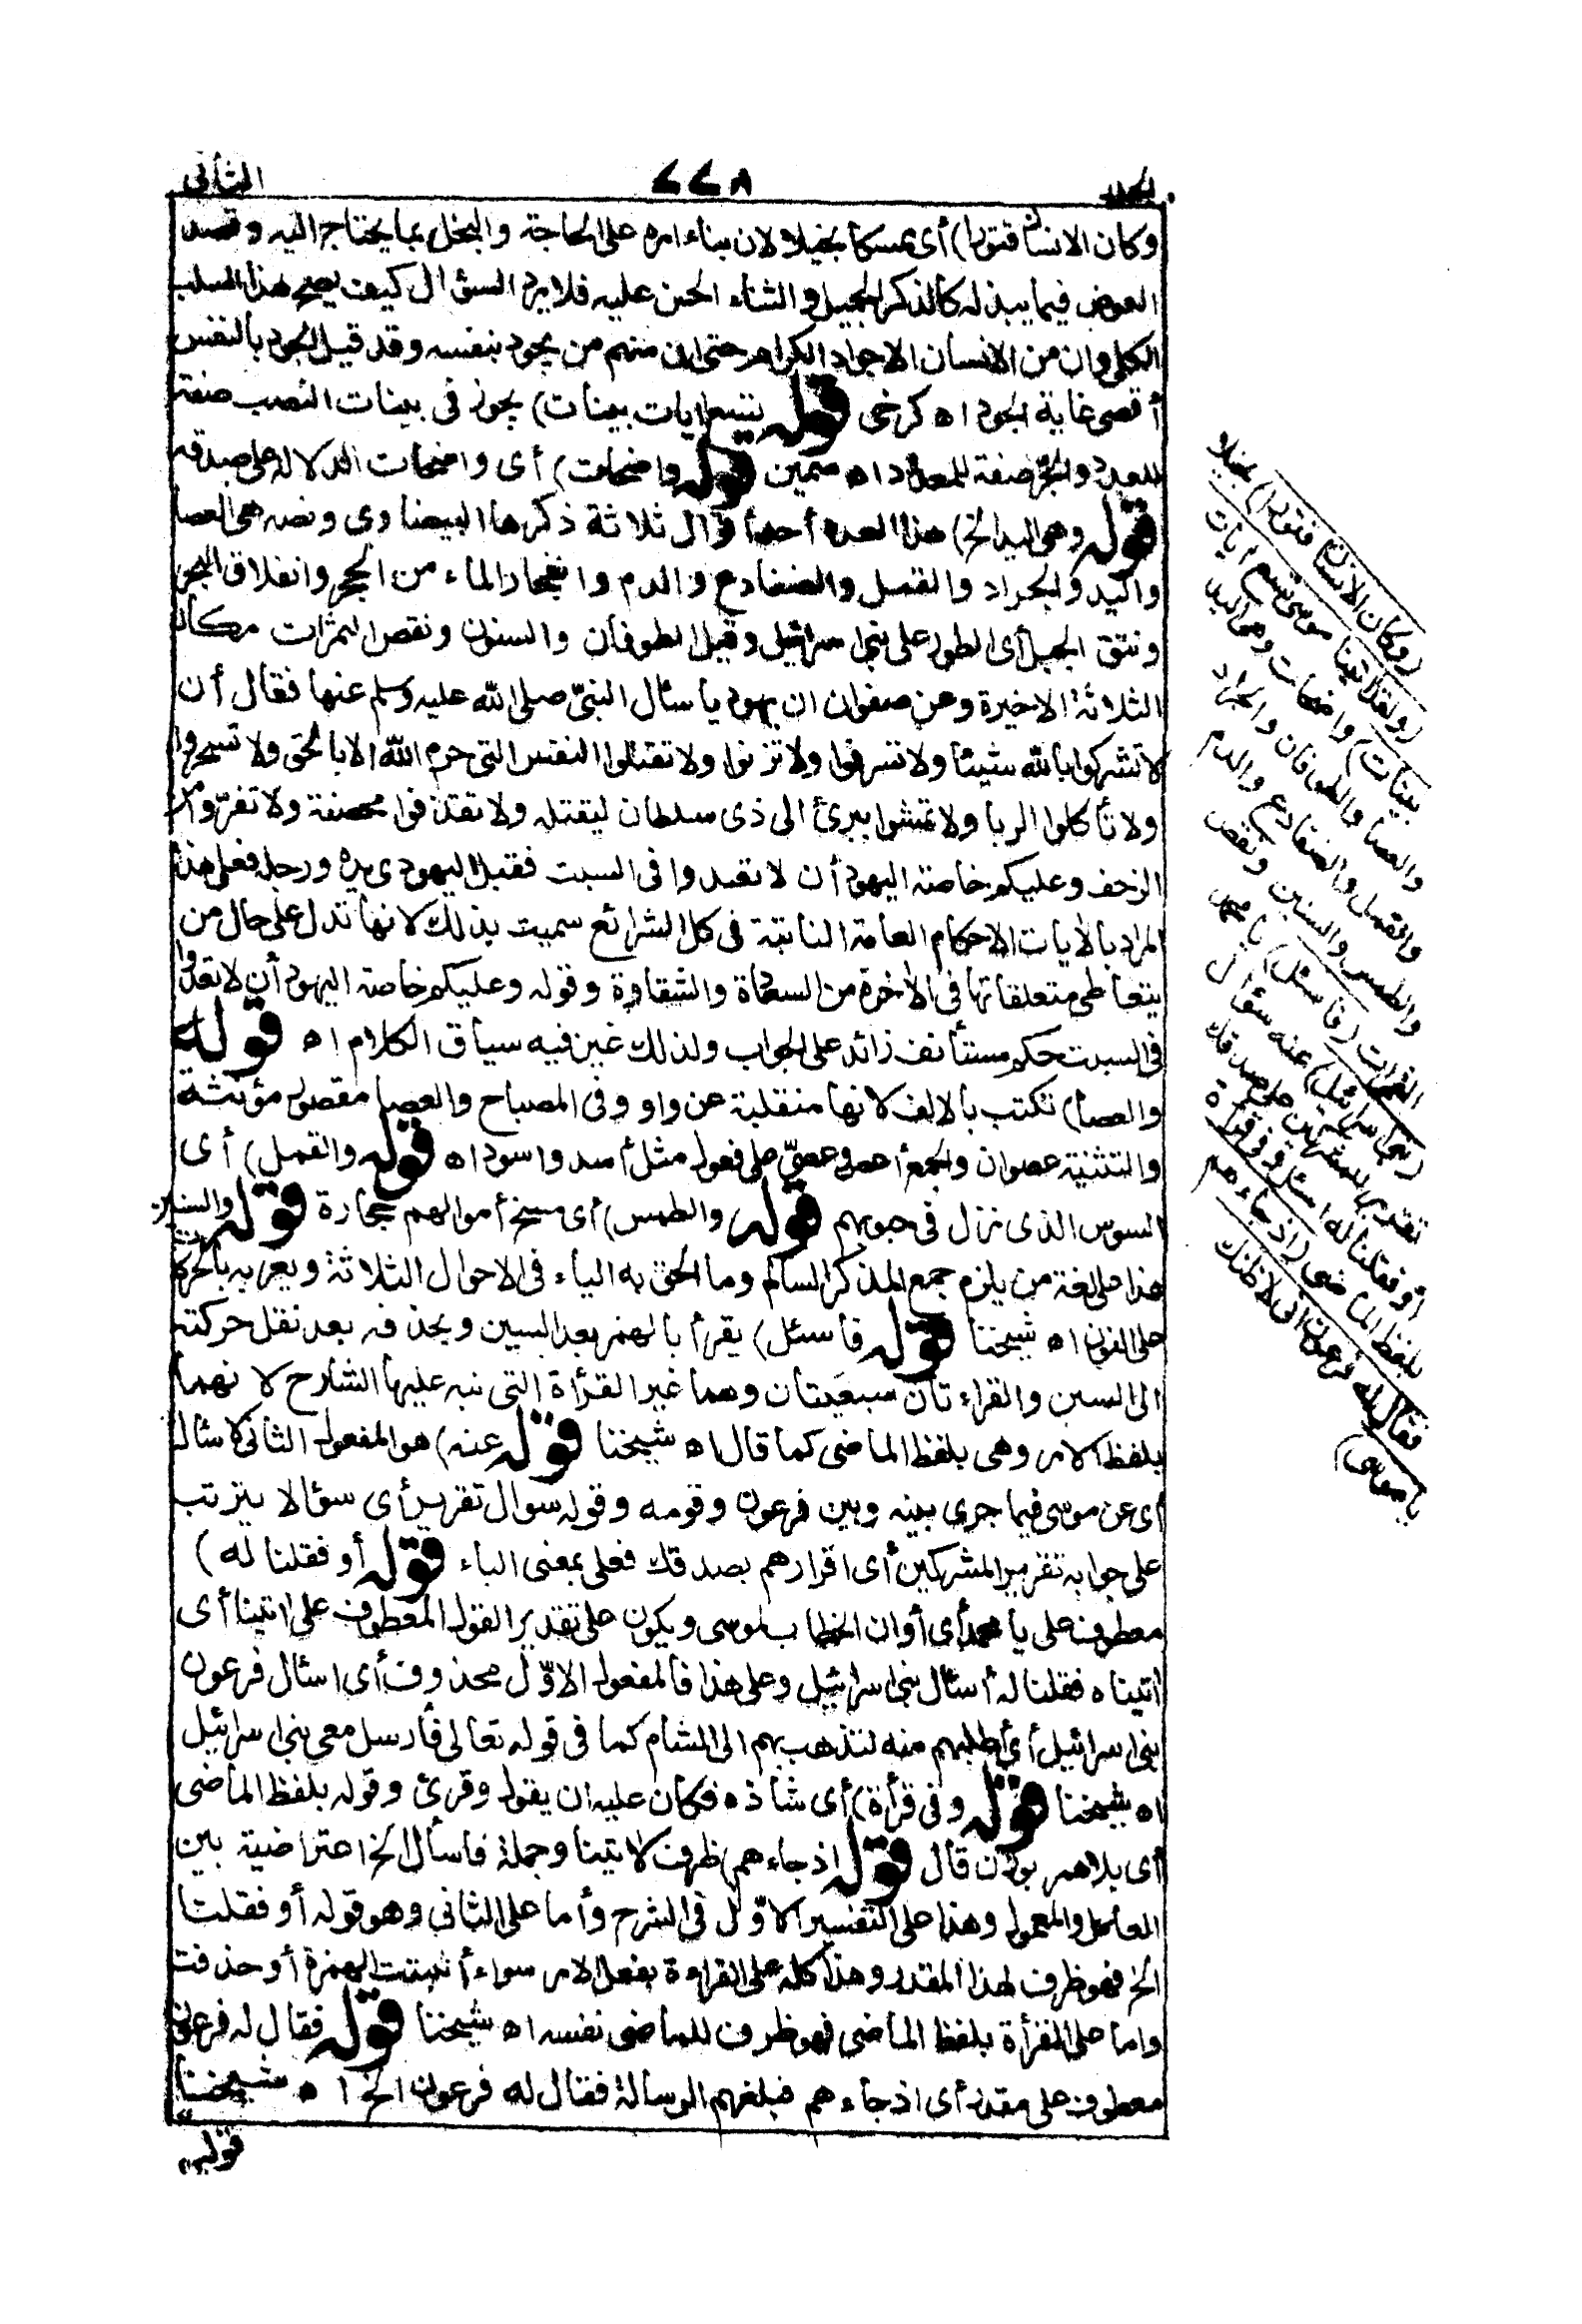 الجلد ٢٢٨ الثانى
وكان الانسان قتورا) أى ممسكا بخيلا لان بناء امره على الحاجة والبخل بما يحتاج اليه وقصد
العوض فيما يبذله كالذكر الجميل والثناء الحسن عليه فلا يرد السؤال كيف يصح هذا السلب
الكلى وان من الانسان الاجواد الكرام حتى ان منهم من يجود بنفسه وقد قيل الجود بالنفس
أقصى غاية الجود اه كرخى قوله تسع ايات بينات) يجوز فى بينات النصب صفة
للعدد والجر صفة للمعدود اه سمين قوله واضحات) أى واضحات الدلالة على صدقه
قوله وهى اليد الخ) هذا العد أحد أقوال ثلاثة ذكرها البيضاوى ونصه هى العصا
واليد والجراد والقمل والضفادع والدم وانفجار الماء من الحجر وانفلاق البحر
ونتق الجبل أى الطور على بنى اسرائيل وقيل الطوفان والسنون ونقص الثمرات مكان
الثلاثة الاخيرة وعن صفوان ان يهوديا سأل النبىّ صلى الله عليه وسلم عنها فقال أن
لا تشركوا بالله شيئا ولا تسرقوا ولا تزنوا ولا تقتلوا النفس التى حرم الله الا بالحق ولا تسحروا
ولا تأكلوا الربا ولا تمشوا ببرئ الى ذى سلطان ليقتله ولا تقذفوا محصنة ولا تفروا من
الزحف وعليكم خاصة اليهود أن لا تعدوا فى السبت فقبل اليهودى يده ورجله فعلى هذا
المراد بالآيات الاحكام العامة الثابتة فى كل الشرائع سميت بذلك لانها تدل على حال من
يتعاطى متعلقاتها فى الآخرة من السعادة والشقاوة وقوله وعليكم خاصة اليهود أن لا تعدوا
فى السبت حكم مستأنف زائد على الجواب ولذلك غير فيه سياق الكلام اه قوله
والعصا) تكتب بالالف لانها منقلبة عن واو وفى المصباح والعصا مقصور مؤنثة
والتثنية عصوان والجمع أعص وعصىّ على فعول مثل أسد واسود اه قوله والقمل) أى
السوس الذى نزل فى حبوبهم قوله والطمس) أى مسخ أموالهم حجارة قوله والسنين
هذا على لغة من يلزم جمع المذكر السالم وما الحق به الياء فى الاحوال الثلاثة ويعربه بالحركا
على النون اه شيخنا قوله فاسئل) يقرأ بالهمز بعد السين وبحذفه بعد نقل حركته
الى السين والقراءتان سبعيتان وهما غير القرأة التى نبه عليها الشارح لانهما
بلفظ الامر وهى بلفظ الماضى كما قال اه شيخنا قوله عنه) هو المفعول الثانى لاسأل
أى عن موسى فيما جرى بينه وبين فرعون وقومه وقوله سوال تقرير أى سؤالا يترتب
على جوابه تقرير المشركين أى اقرارهم بصدقك فعلى بمعنى الباء قوله أو فقلنا له)
معطوف على يا محمد أى أو ان الخطاب لموسى ويكون على تقدير القول المعطوف على اتينا أى
اتيناه فقلنا له أسأل بنى اسرائيل وعلى هذا فالمفعول الاوّل محذوف أى اسأل فرعون
بنى اسرائيل أى اطلبهم منه لتذهب بهم الى الشام كما فى قوله تعالى فأرسل معى بنى اسرائيل
اه شيخنا قوله وفى قرأة) أى شاذه فكان عليه ان يقول وقرئ وقوله بلفظ الماضى
أى بلا همز بوزن قال قوله اذ جاءهم) ظرف لآتينا وجملة فاسأل الخ اعتراضية بين
العامل والمعمول وهذا على التفسير الاوّل فى الشرح وأما على الثانى وهو قوله أو فقلنا
الخ فهو ظرف لهذا المقدر وهذا كله على القراءة بفعل الامر سواء أثبتت الهمزة أو حذفت
واما على القرأة بلفظ الماضى فهو ظرف للماضى نفسه اه شيخنا قوله فقال له فرعون
معطوف على مقدر أى اذ جاءهم فبلغهم الرسالة فقال له فرعون الخ اه شيخنا
قوله
(وكان الانسان قتورا) بخيلا
(ولقد اتينا موسى تسع ايات
بينات) واضحات وهى اليد
والعصا والطوفان والجراد
والقمل والضفادع والدم
والطمس والسنين ونقص
الثمرات (فاسئل) يا محمد
(بنى اسرائيل) عنه سؤال
تقرير للمشركين على صدقك
أو فقلنا له اسئل وفى قرأة
بلفظ الماضى (اذ جاءهم
فقال له فرعون انى لاظنك
يا موسى)